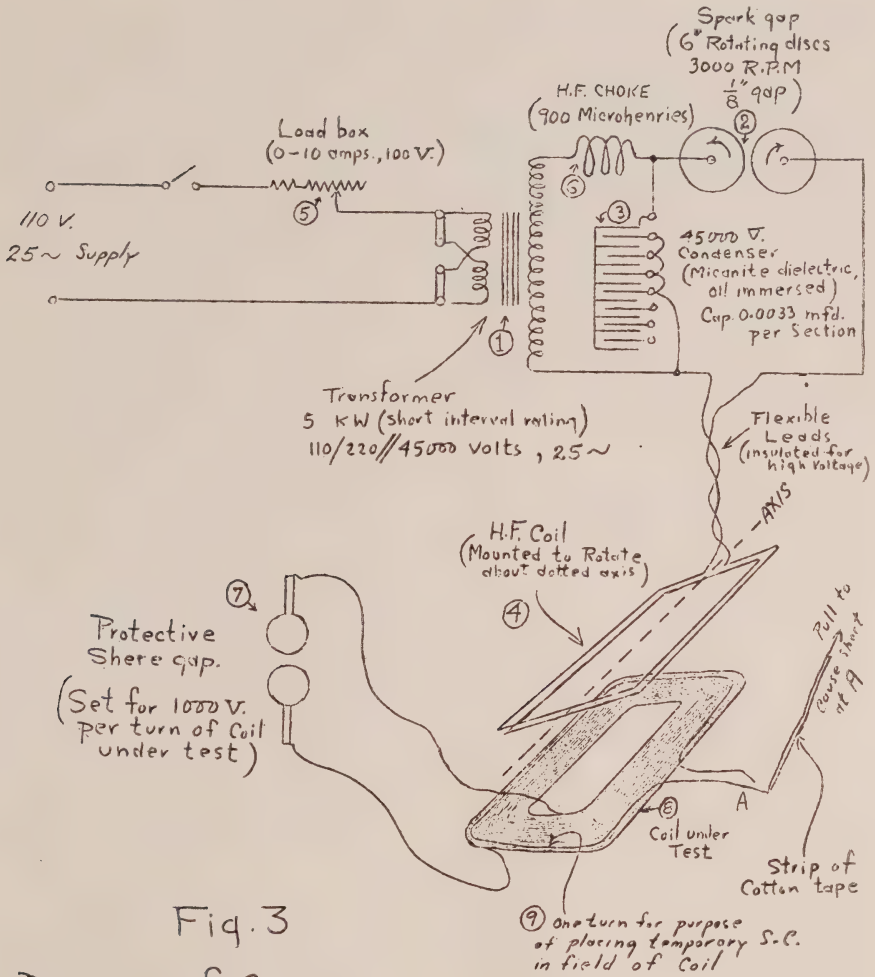 Spark gap
(6" Rotating discs
3000 R.P.M
1/8" gap)
②
H.F. CHOKE
(900 Microhenries)
⑥
Load box
(0-10 amps., 100 V.)
⑤
110 V.
25~ Supply
③
45000 V.
Condenser
(Micanite dielectric,
oil immersed)
Cap. 0.0033 mfd.
per Section
①
Transformer
5 KW (short interval rating)
110/220//45000 Volts, 25~
Flexible
Leads
(insulated for
high voltage)
AXIS
H.F. Coil
(Mounted to Rotate
about dotted axis)
④
⑦
Protective
Shere gap.
(Set for 1000 V.
per turn of Coil
under test)
Pull to
cause short
at A
A
⑧
Coil under
Test
Strip of
Cotton tape
Fig. 3
⑨ One turn for purpose
of placing temporary S.C.
in field of Coil